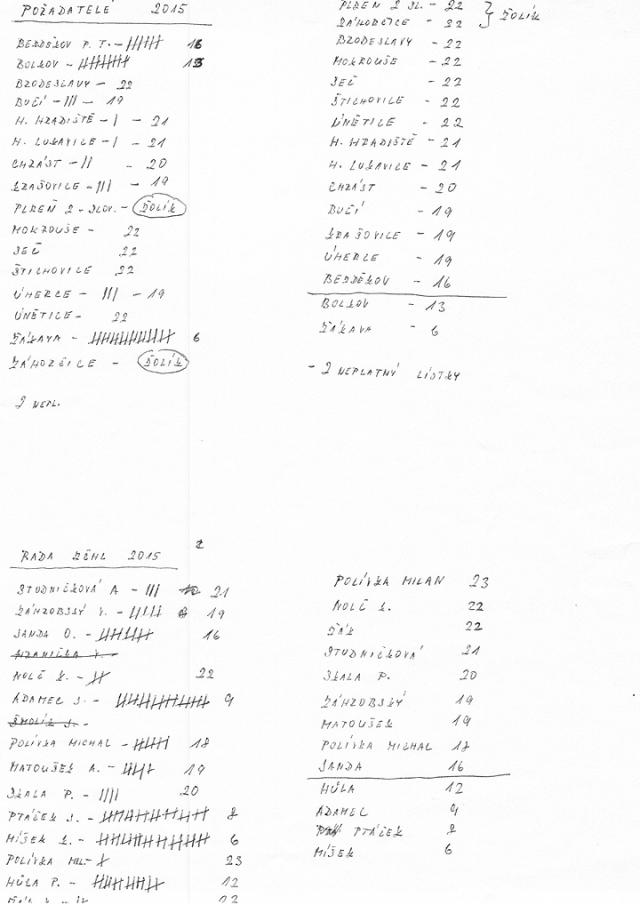 POŽADATELÉ 2015
BEZDĚKOV P. T. - 16
BOLKOV - 13
BZODESLAVY - 22
BUČÍ - III - 19
H. HRADIŠTĚ - I - 21
H. LUKAVICE - I - 21
CHRÁST - II - 20
KRAŠOVICE - III - 19
PLZEŇ 2 - SLOV. - ŠOLÍK
MOKROUŠE - 22
SEČ 22
ŠTICHOVICE 22
ÚHERCE - III - 19
ÚNĚTICE - 22
ŽÁKAVA - 6
ZÁHORČICE - ŠOLÍK
2 NEPL.
PLZEŇ 2 SL. - 22
ZÁHORČICE - 22 } ŠOLÍK
BZODESLAVY - 22
MOKROUŠE - 22
SEČ - 22
ŠTICHOVICE - 22
ÚNĚTICE - 22
H. HRADIŠTĚ - 21
H. LUKAVICE - 21
CHRÁST - 20
BUČÍ - 19
KRAŠOVICE - 19
ÚHERCE - 19
BEZDĚKOV - 16
BOLKOV - 13
ŽÁKAVA - 6
- 2 NEPLATNÝ LÍSTKY
RADA 2015
STUDNIČKOVÁ A - III 21
19
JANDA O. - 16
NOLČ K. - 22
ADAMEC J. - 9
POLÍVKA MICHAL - 18
MATOUŠEK A. - 19
SKALA P. - IIII 20
PTÁČEK J. - 8
MÍŠEK - 6
POLÍVKA MIL. - 23
HŮLA P. - 12
POLÍVKA MILAN 23
NOLČ K. 22
ŽÁK 22
STUDNIČKOVÁ 21
SKALA P. 20
ZÁHROBSKÝ 19
MATOUŠEK 19
POLÍVKA MICHAL 18
JANDA 16
HŮLA 12
ADAMEC 9
PTÁČEK 8
MÍŠEK 6